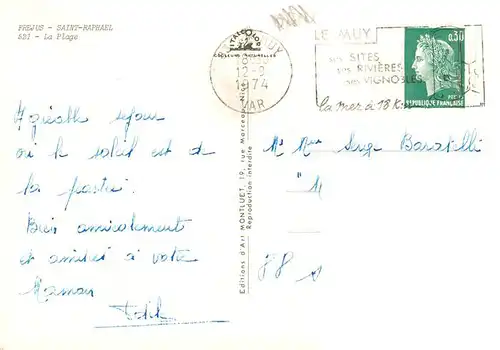 FREJUS - SAINT-RAPHAEL
621 - La Plage
LE MUY
12-9
1974
VAR
LE MUY
SES SITES
SES RIVIÈRES
SES VIGNOBLES
la mer à 18 K
0,30
RÉPUBLIQUE FRANÇAISE
Agréable séjour
où le soleil est d
la partie.
Bien amicalement
et amitiés à votre
Maman
Editions d'Art MONTLUET, 19, rue Marceau
Reproduction interdite
Mr Mme Serge Baratelli